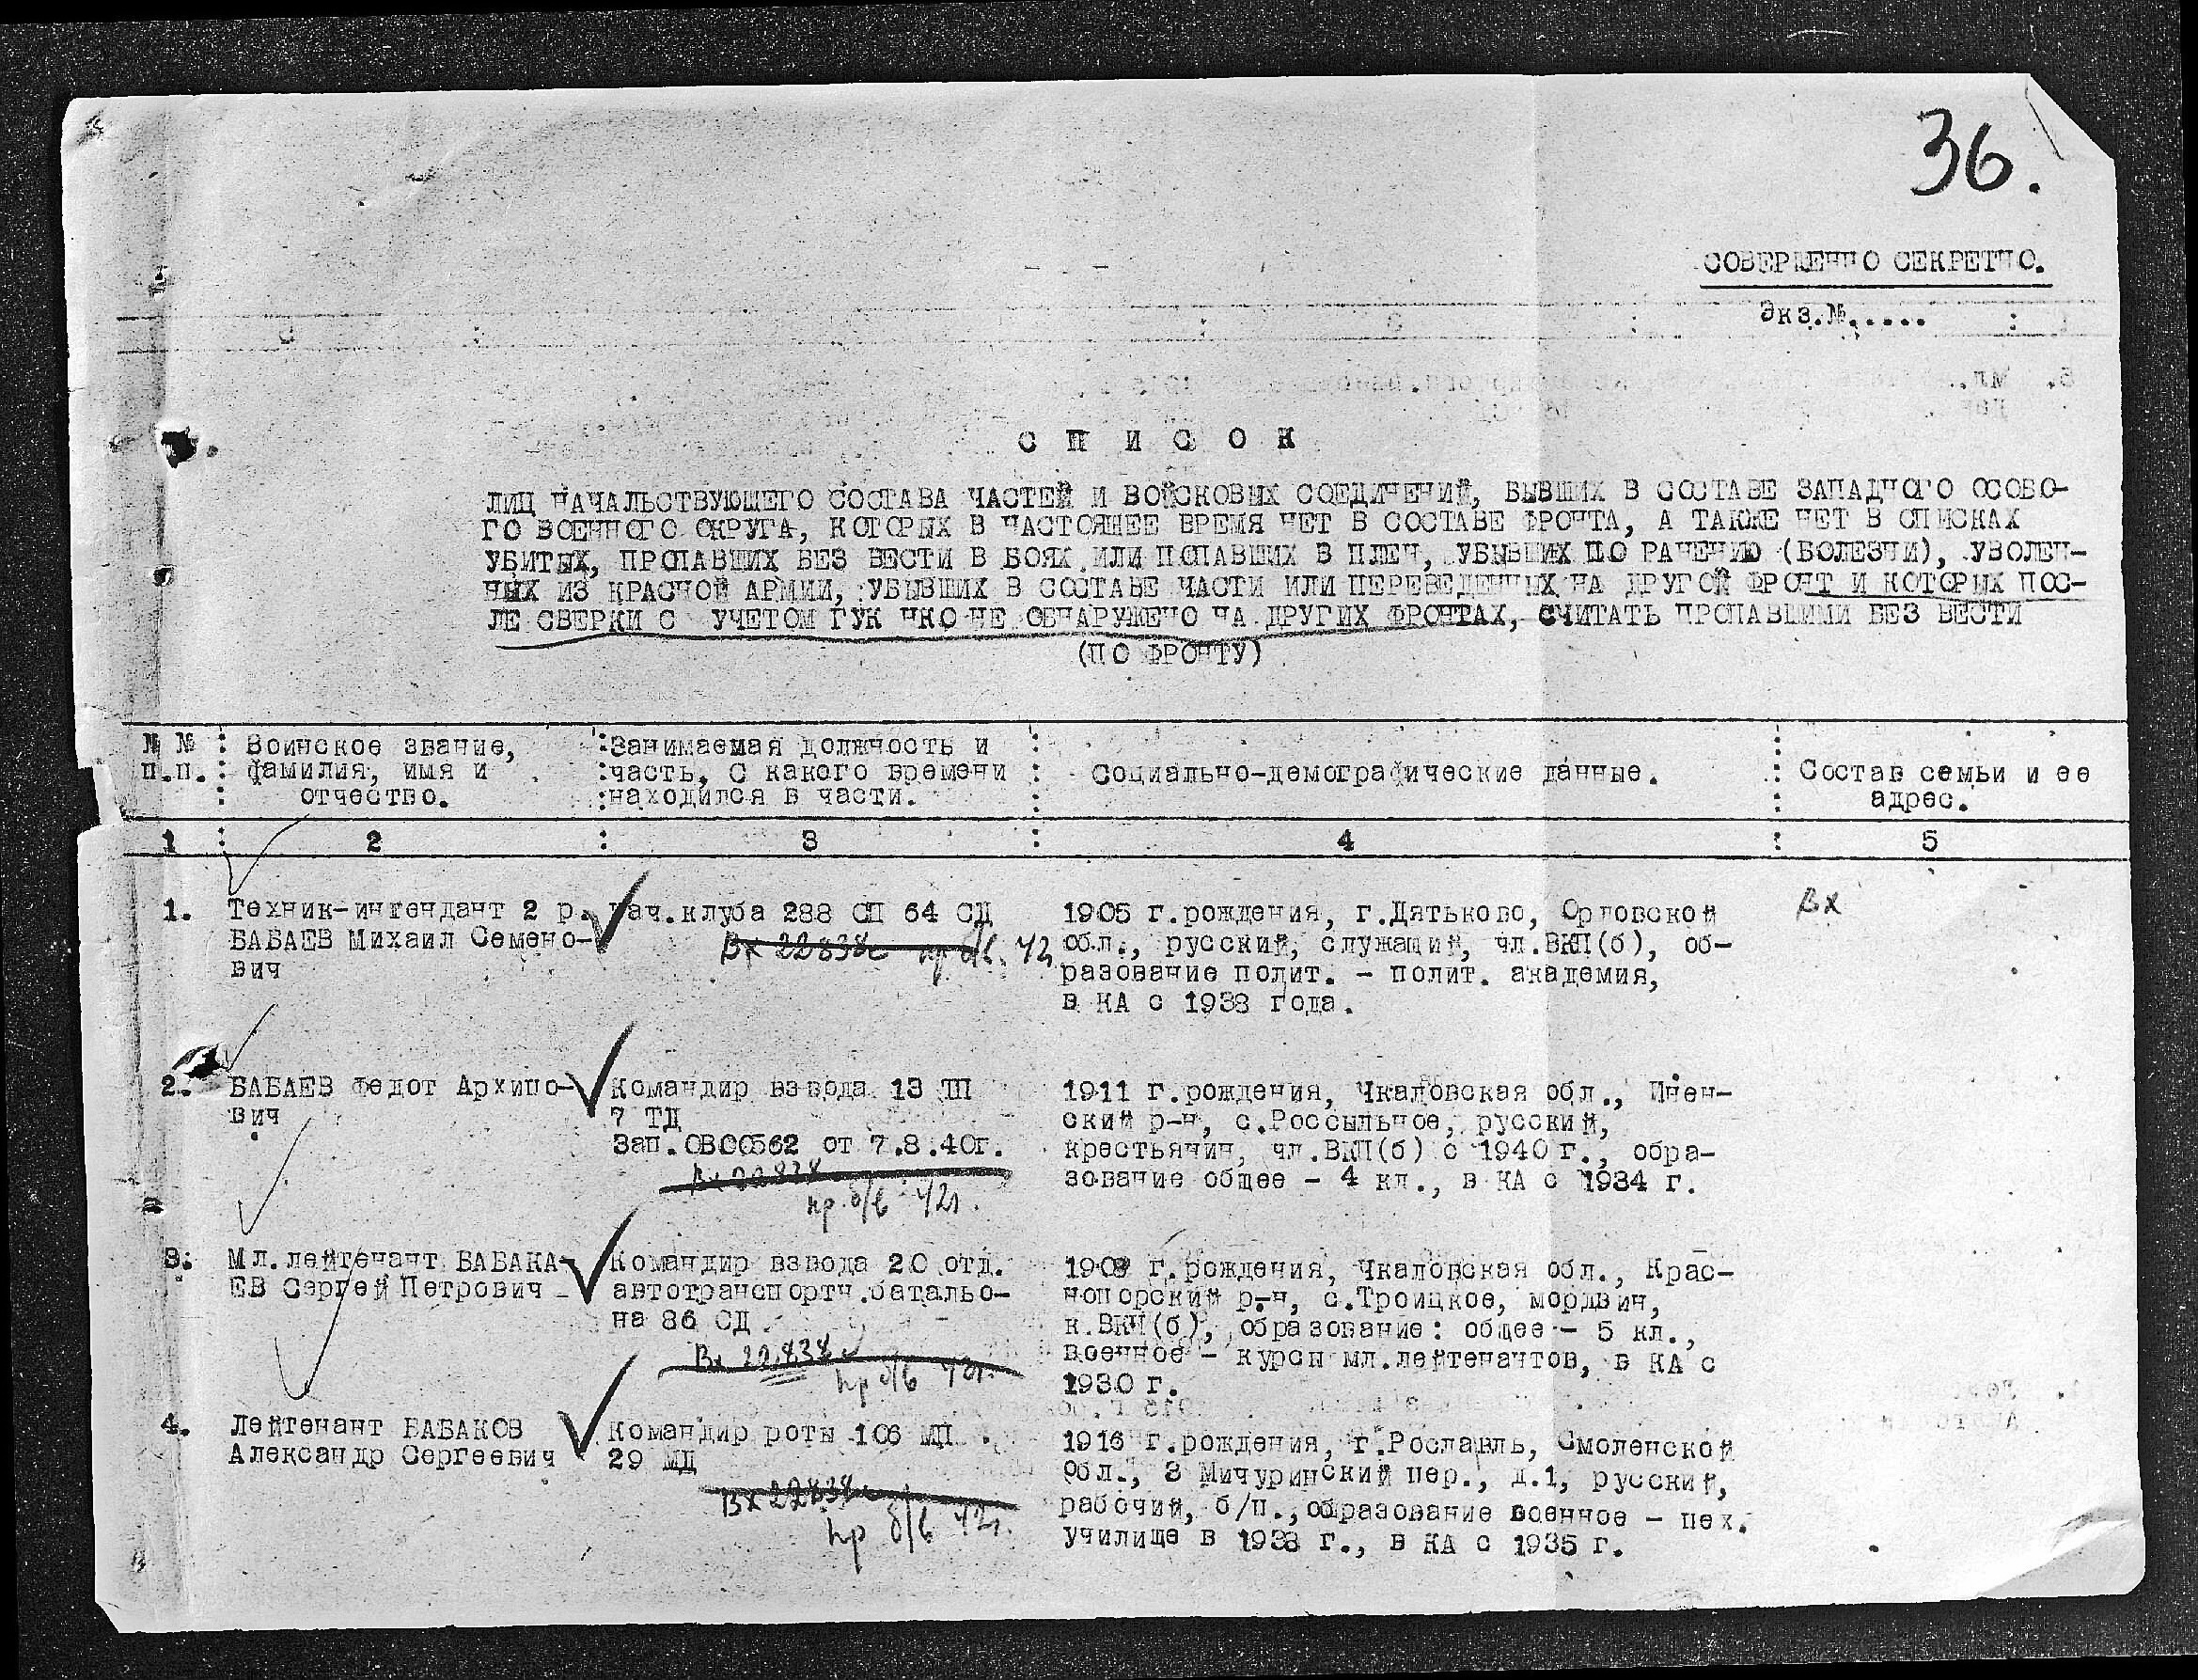 36.
СОВЕРШЕННО СЕКРЕТНО.
Экз.№.....
С П И С О К
ЛИЦ НАЧАЛЬСТВУЮЩЕГО СОСТАВА ЧАСТЕЙ И ВОЙСКОВЫХ СОЕДИНЕНИЙ, БЫВШИХ В СОСТАВЕ ЗАПАДНОГО ОСОБО-
ГО ВОЕННОГО ОКРУГА, КОТОРЫХ В НАСТОЯЩЕЕ ВРЕМЯ НЕТ В СОСТАВЕ ФРОНТА, А ТАКЖЕ НЕТ В СПИСКАХ
УБИТЫХ, ПРОПАВШИХ БЕЗ ВЕСТИ В БОЯХ ИЛИ ПОПАВШИХ В ПЛЕН, УБЫВШИХ ПО РАНЕНИЮ (БОЛЕЗНИ), УВОЛЕН-
НЫХ ИЗ КРАСНОЙ АРМИИ, УБЫВШИХ В СОСТАВЕ ЧАСТИ ИЛИ ПЕРЕВЕДЕННЫХ НА ДРУГОЙ ФРОНТ И КОТОРЫХ ПОС-
ЛЕ СВЕРКИ С УЧЕТОМ ГУК НКО НЕ ОБНАРУЖЕНО НА ДРУГИХ ФРОНТАХ, СЧИТАТЬ ПРОПАВШИМИ БЕЗ ВЕСТИ
(ПО ФРОНТУ)
№ № : Воинское звание, :Занимаемая должность и :
п.п. : фамилия, имя и :часть, с какого времени : Социально-демографические данные. : Состав семьи и ее
: отчество. :находился в части. : адрес.
1 : 2 : 3 : 4 : 5
1. Техник-интендант 2 р. Нач.клуба 288 СП 64 СД 1905 г.рождения, г.Дятьково, Орловской Вх
БАБАЕВ Михаил Семено- Вх 22838с пр б/в. 42 обл., русский, служащий, чл.ВКП(б), об-
вич разование полит. - полит. академия,
в КА с 1938 года.
2. БАБАЕВ Федот Архипо- Командир взвода 13 ТП 1911 г.рождения, Чкаловская обл., Инен-
вич 7 ТД ский р-н, с.Россыпьное, русский,
Зап.ОВ00562 от 7.8.40г. крестьянин, чл.ВКП(б) с 1940 г., обра-
Вх 22838 зование общее - 4 кл., в КА с 1934 г.
пр. б/в 42г.
3. Мл.лейтенант БАБАКА- Командир взвода 20 отд. г.рождения, Чкаловская обл., Крас-
ЕВ Сергей Петрович - автотранспортн.батальо- нопорский р-н, с.Троицкое, мордвин,
на 86 СД к.ВКП(б), образование: общее - 5 кл.,
Вх 22838с военное - курсы мл.лейтенантов, в КА с
пр б/в 42г. 1930 г.
4. Лейтенант БАБАКОВ Командир роты 106 МП 1916 г.рождения, г.Рославль, Смоленской
Александр Сергеевич 29 МД обл., 3 Мичуринский пер., д.1, русский,
Вх 22838с рабочий, б/п., образование военное - пех.
пр б/в 42г. училище в 1938 г., в КА с 1935 г.